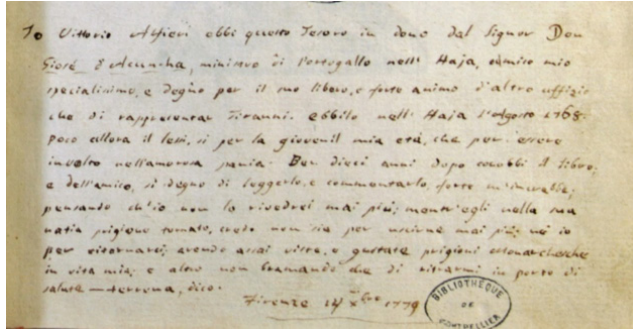 Io Vittorio Alfieri ebbi questo Tesoro in dono dal Signor Don
Giosè d'Acuncha, ministro di Portogallo nell' Haja, amico mio
specialissimo, e degno per il suo libero, e forte animo d'altro uffizio
che di rappresentar Tiranni. ebbilo nell' Haja l'Agosto 1768.
poco allora il lessi, sì per la giovenil mia età, che per essere
involto nell'amorosa pania. Ben dieci anni dopo conobbi il libro;
e dell'amico, sì degno di leggerlo, e commentarlo, forte m'increbbe;
pensando ch'io non lo rivedrei mai più; mentr'egli nella sua
natia prigione tornato, credo non sia per uscirne mai più; nè io
per ritornarci; avendo assai viste, e gustate prigioni
in vita mia; e altro non bramando che di ritrarmi in porto di
salute terrena, dico.
Firenze 14 Xbre 1779
BIBLIOTHEQUE
DE
MONTPELLIER